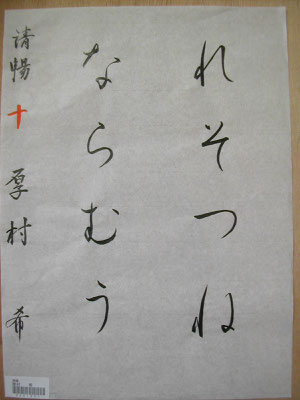 れそつね
ならむう
清暢 十 厚村 希